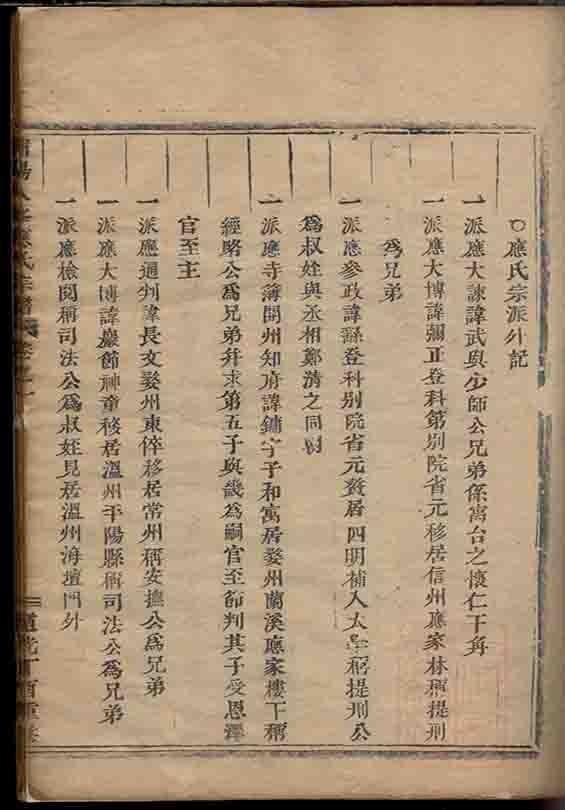 ○應氏宗派外記
一派應大諫諱武與少師公兄弟係寓台之懷仁干再
一派應大博諱彌正登科第別院省元移居信州應家林稱提刑
為兄弟
一派應參政諱䌛登科別院省元贅居四明補入太學稱提刑公
為叔姪與丞相鄭清之同
一派應寺簿開州知府諱鏞字子和寓居婺州蘭溪應家樓下稱
經畧公為兄弟幷求第五子與畿為嗣官至節判其子受恩澤
官至主
一派應通判諱長文婺州東倅移居常州稱安撫公為兄弟
一派應大博諱巖節神童移居溫州平陽縣稱司法公為兄弟
一派應檢閱稱司法公為叔姪見居溫州海壇門外
應氏宗譜
道光丁酉重